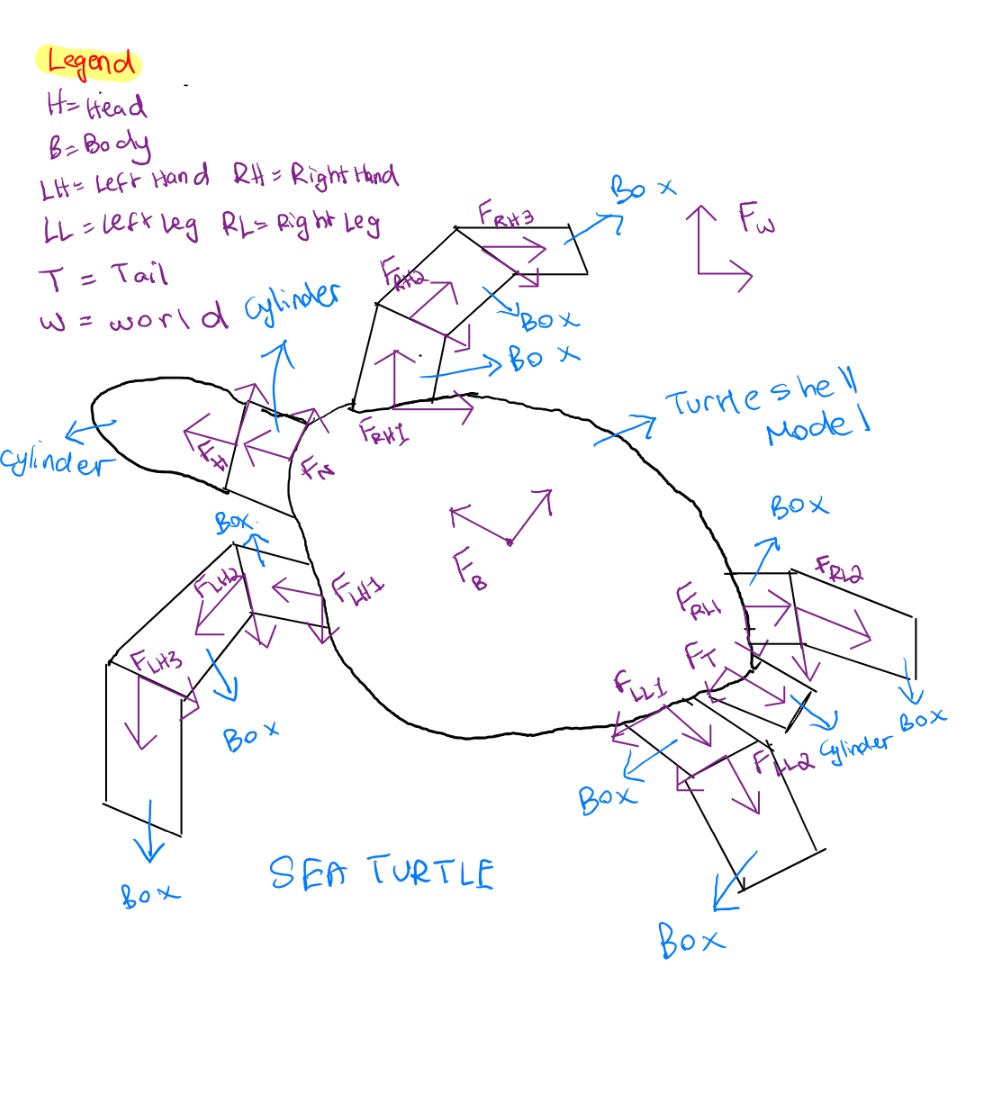 Legend
H= Head
B= Body
LH= Left Hand RH = Right Hand
LL = Left Leg RL= Right Leg
T = Tail
W = World
Cylinder
Box
F_RH3
F_W
F_RH2
Box
Box
Turtle shell
Model
F_RH1
Cylinder
F_H
F_N
Box
Box
F_LH2
F_LH1
F_B
F_RL1
F_RL2
F_LH3
F_T
F_LL1
Box
Box
Cylinder
F_LL2
Box
Box
SEA TURTLE
Box